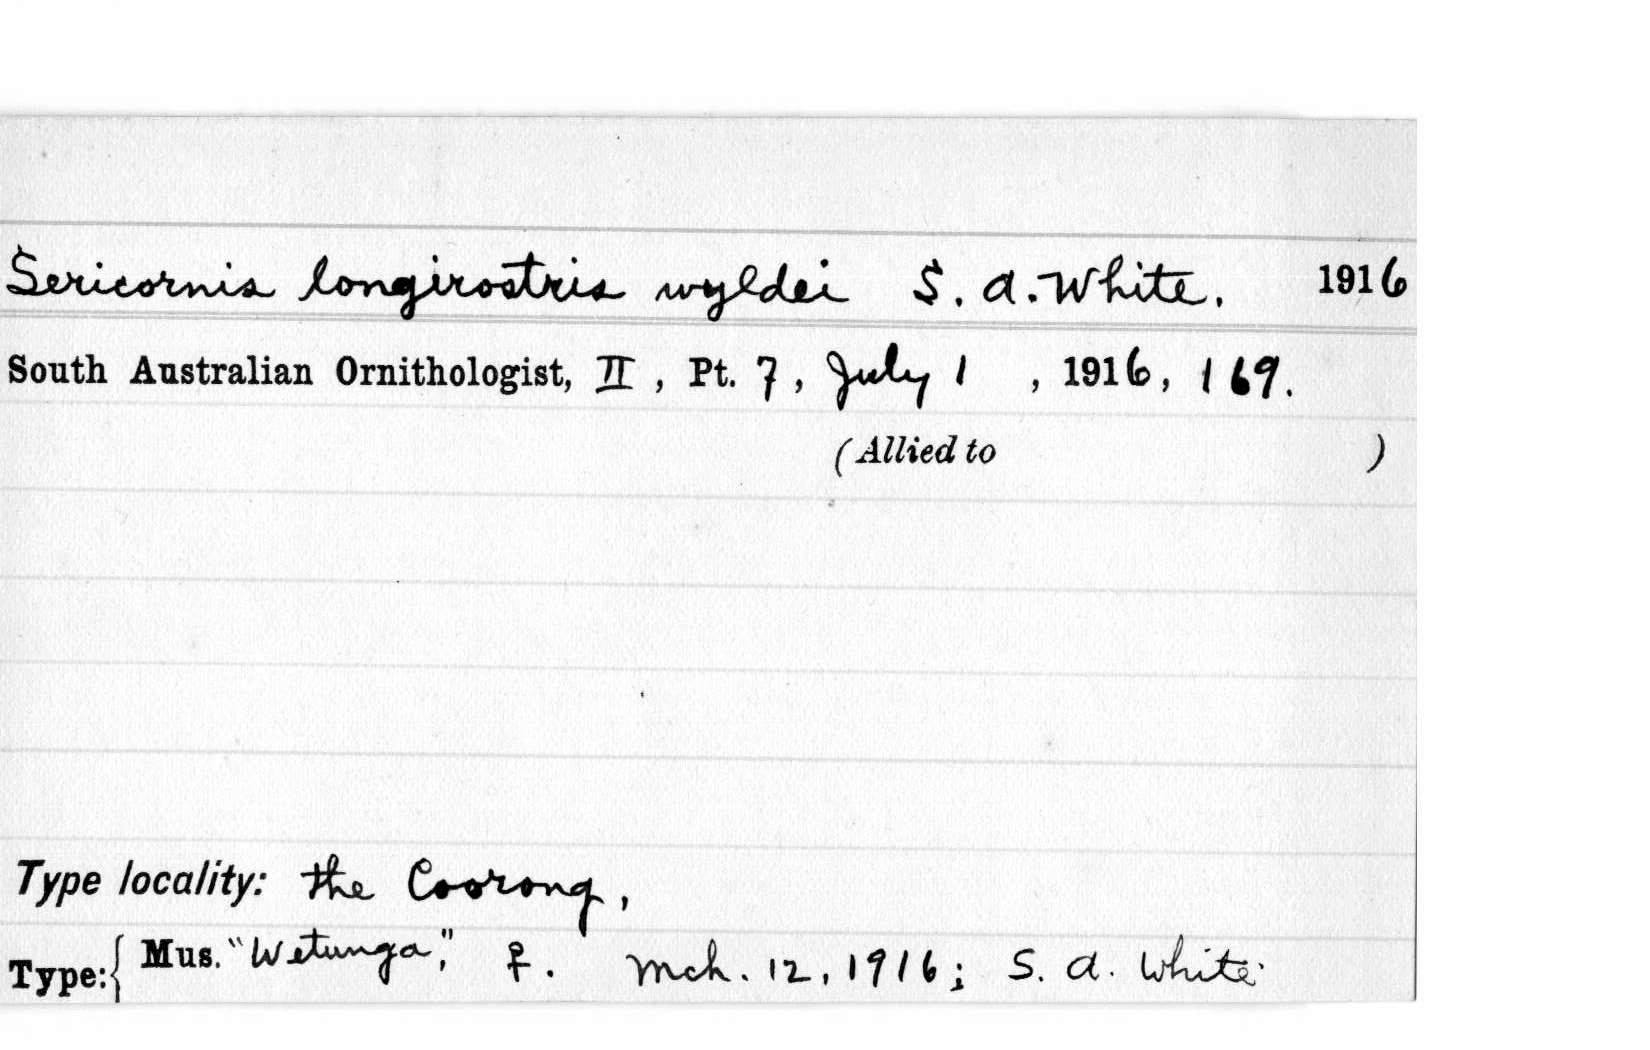 Sericornis longirostris wyldei S. A. White. 1916
South Australian Ornithologist, II, Pt. 7, July 1, 1916, 169.
(Allied to )
Type locality: the Coorong,
Type:{ Mus. "Wetunga", ♀. Mch. 12, 1916; S. A. White.